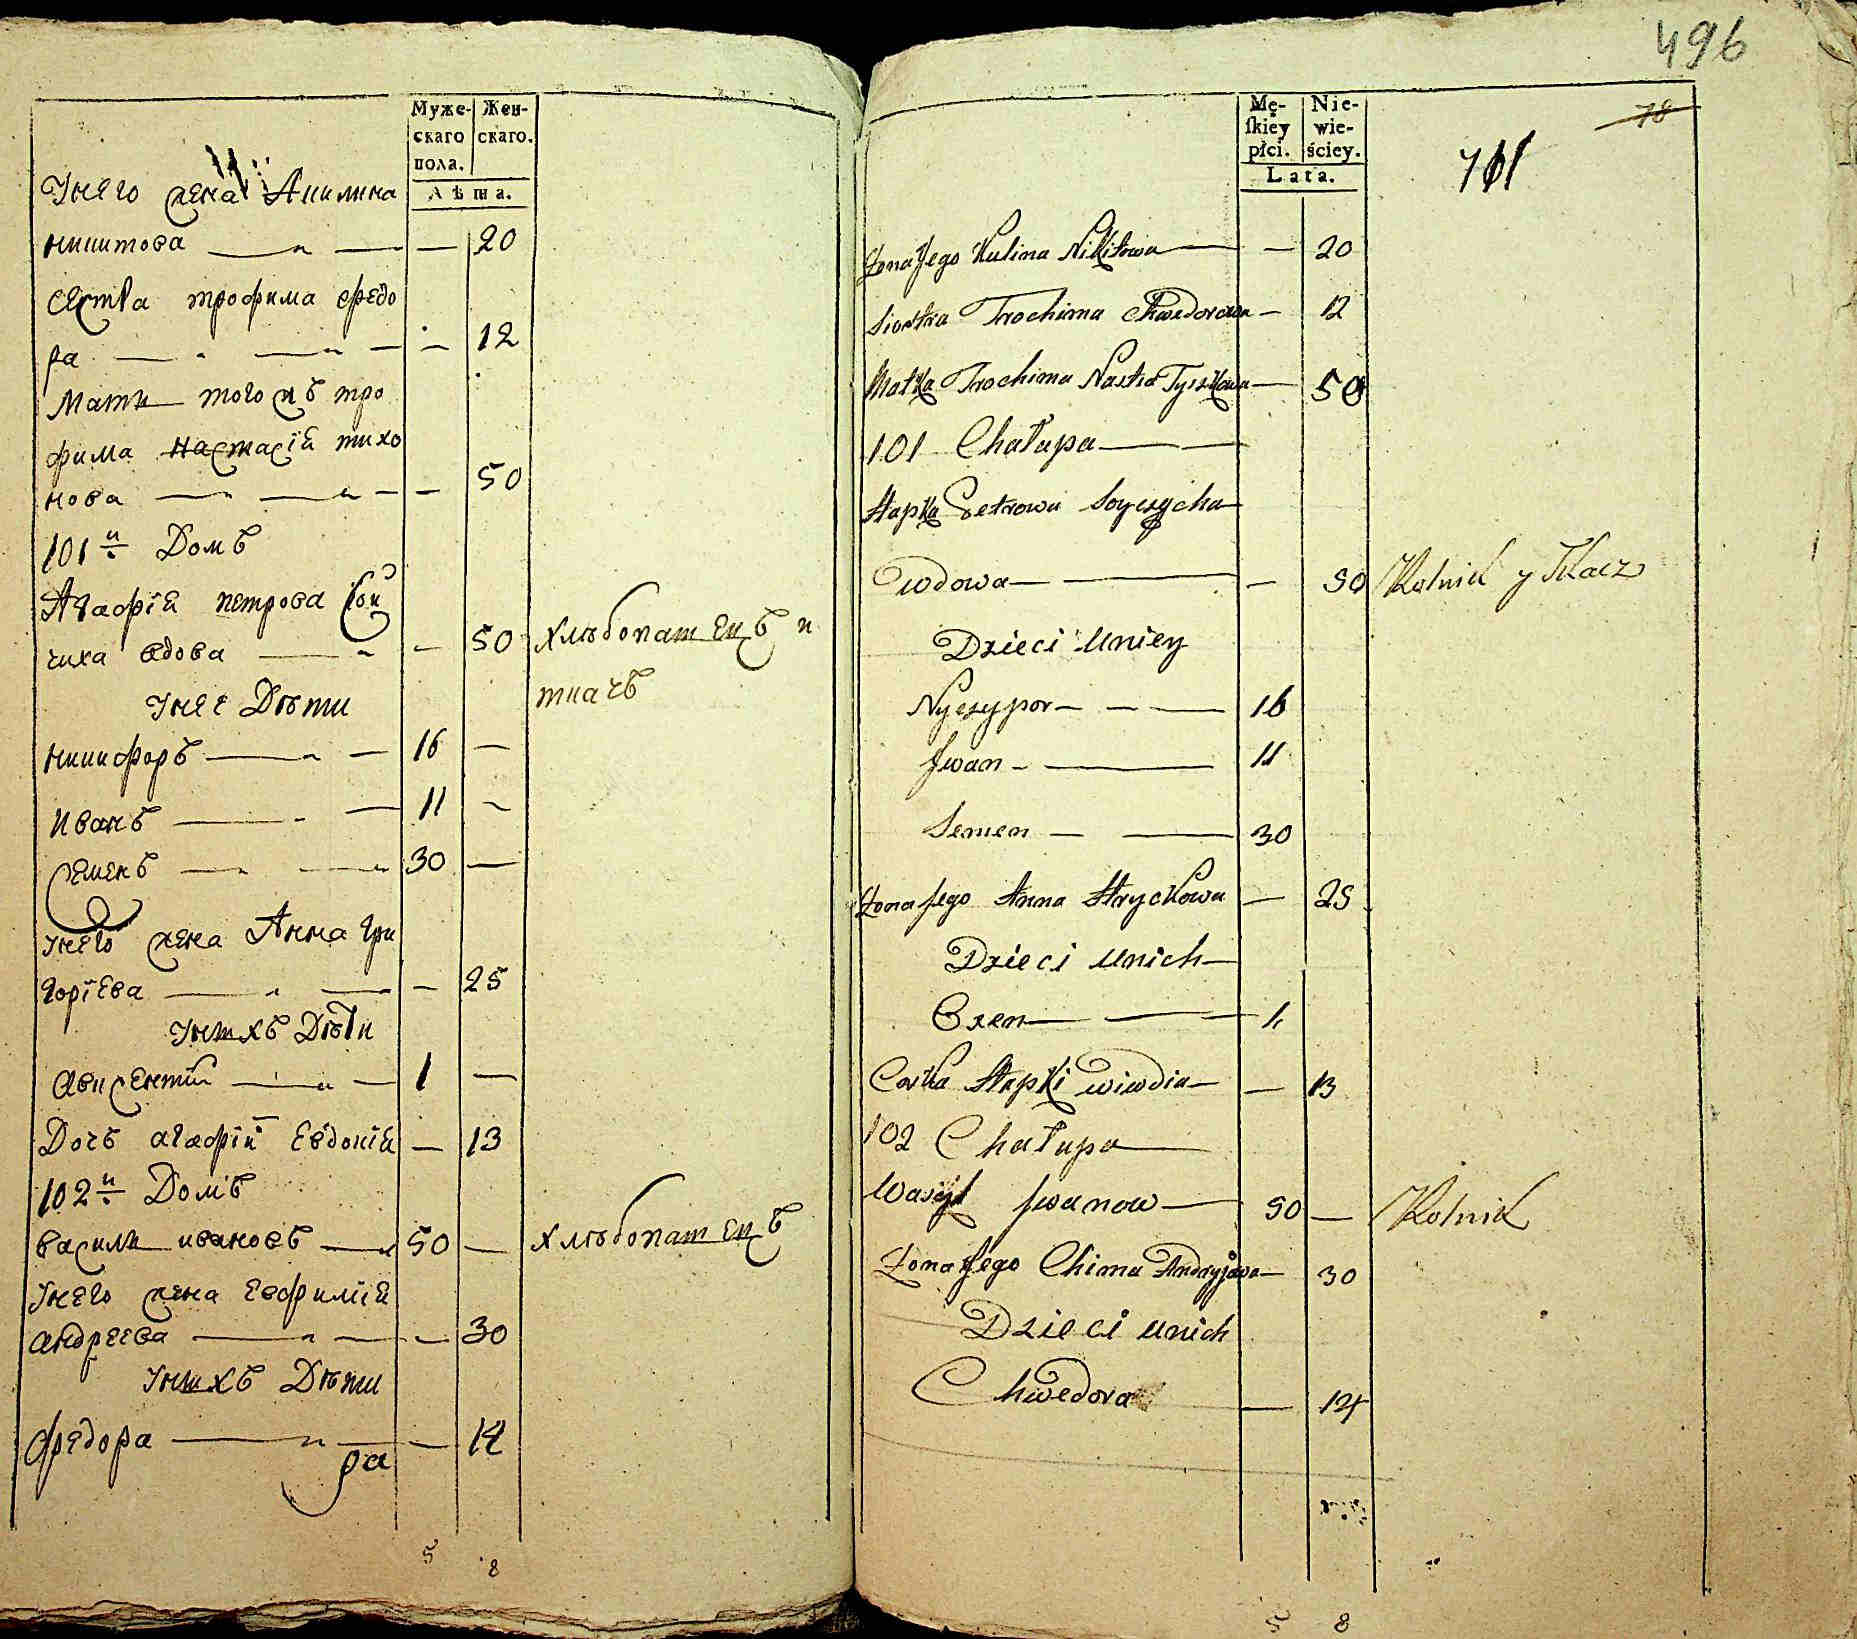 Муже-
скаго
пола.
Жен-
скаго.
Лѣта.
Унего жена Акилина
никитова — — — 20
Сестра трофима федо
ра — — — 12
Мати того жъ тро
фима настасїя тихо
нова — — — 50
101й Домъ
Агафїя петрова сои
чиха вдова — — 50 хлѣбопашецъ и
ткачъ
Унее Дѣти
никифоръ — — 16 —
Иванъ — — 11 —
Семенъ — — 30 —
Унего жена Анна гри
горїева — — — 25
Унихъ Дѣти
Авксентїй — — 1 —
Дочъ агафїи Евдокїя — 13
102й Домъ
василий ивановъ — 50 — хлѣбопашецъ
Унего жена Евфимїя
андреева — — — 30
Унихъ Дѣти
федора — — — 14
ра
5 8
496
78
701
Mę-
skiey
płci.
Nie-
wie-
ściey.
Lata.
Żona Jego Kulina Nikitowa — — 20
Siostra Trochima Chwedorowa — 12
Matka Trochima Nasta Tyszkowa — 50
101 Chałupa — —
Hapka Petrowa Soyczycha
Wdowa — — — 50 Rolnik y Tkacz
Dzieci Uniey
Nyczypor — — — 16
Jwan — — 11
Semen — — 30
Żona Jego Anna Hryckowa — 25
Dzieci Unich —
Owxen — — 1
Corka Hapki wiwdia — — 13
102 Chałupa —
Wasyl Jwanow — 50 — Rolnik
Żona Jego Chima Andryjowa — 30
Dzieci Unich
Chwedora — 14
5 8